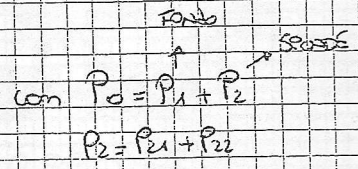 FONDO
SPONDE
con P0 = P1 + P2
P2 = P21 + P22